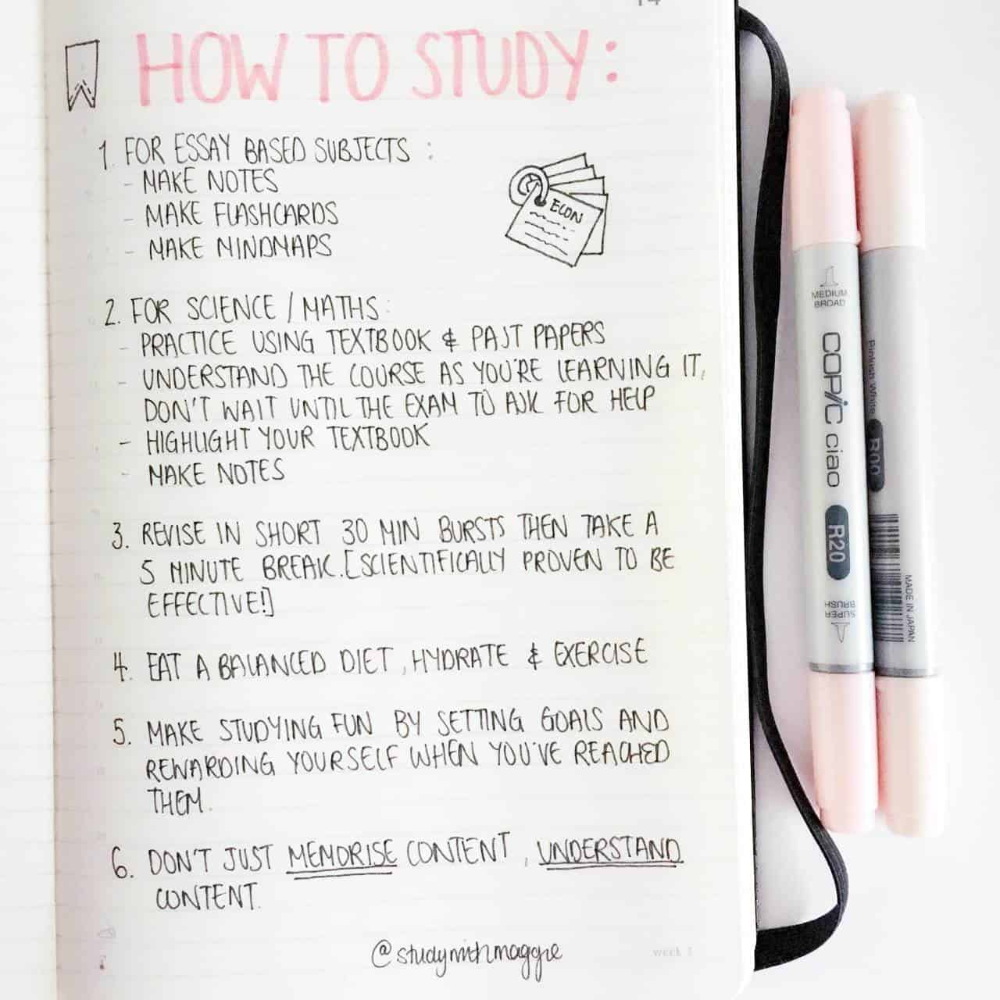 HOW TO STUDY:
1. FOR ESSAY BASED SUBJECTS :
- MAKE NOTES
- MAKE FLASHCARDS
- MAKE MINDMAPS
ECON
2. FOR SCIENCE / MATHS:
- PRACTICE USING TEXTBOOK & PAST PAPERS
- UNDERSTAND THE COURSE AS YOU'RE LEARNING IT,
DON'T WAIT UNTIL THE EXAM TO ASK FOR HELP
- HIGHLIGHT YOUR TEXTBOOK
- MAKE NOTES
3. REVISE IN SHORT 30 MIN BURSTS THEN TAKE A
5 MINUTE BREAK.[SCIENTIFICALLY PROVEN TO BE
EFFECTIVE!]
4. EAT A BALANCED DIET, HYDRATE & EXERCISE
5. MAKE STUDYING FUN BY SETTING GOALS AND
REWARDING YOURSELF WHEN YOU'VE REACHED
THEM.
6. DON'T JUST MEMORISE CONTENT, UNDERSTAND
CONTENT.
@studywithmaggie
week 1
MEDIUM
BROAD
COPIC ciao
R20
SUPER
BRUSH
Pinkish White
R00
MADE IN JAPAN